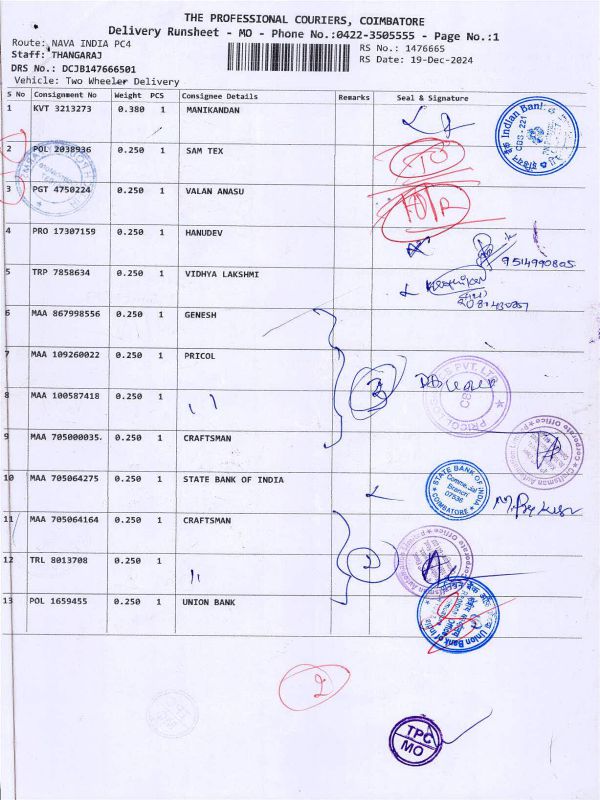 THE PROFESSIONAL COURIERS, COIMBATORE
Delivery Runsheet - MO - Phone No.:0422-3505555 - Page No.:1
Route: NAVA INDIA PC4
RS No.: 1476665
Staff: THANGARAJ
RS Date: 19-Dec-2024
DRS No.: DCJB147666501
Vehicle: Two Wheeler Delivery
S No Consignment No Weight PCS Consignee Details Remarks Seal & Signature
1 KVT 3213273 0.380 1 MANIKANDAN
Indian Bank
CBS - 221
2 POL 2038936 0.250 1 SAM TEX
3 PGT 4750224 0.250 1 VALAN ANASU
4 PRO 17307159 0.250 1 HANUDEV
9514990805
5 TRP 7858634 0.250 1 VIDHYA LAKSHMI
6 MAA 867998556 0.250 1 GENESH
7 MAA 109260022 0.250 1 PRICOL
8 MAA 100587418 0.250 1 ''
9 MAA 705000035. 0.250 1 CRAFTSMAN
Corporate Office
10 MAA 705064275 0.250 1 STATE BANK OF INDIA
STATE BANK OF INDIA
Branch
07536
COIMBATORE
11 MAA 705064164 0.250 1 CRAFTSMAN
Corporate Office
12 TRL 8013708 0.250 1 ''
2
13 POL 1659455 0.250 1 UNION BANK
Union Bank of India
2
TPC
MO